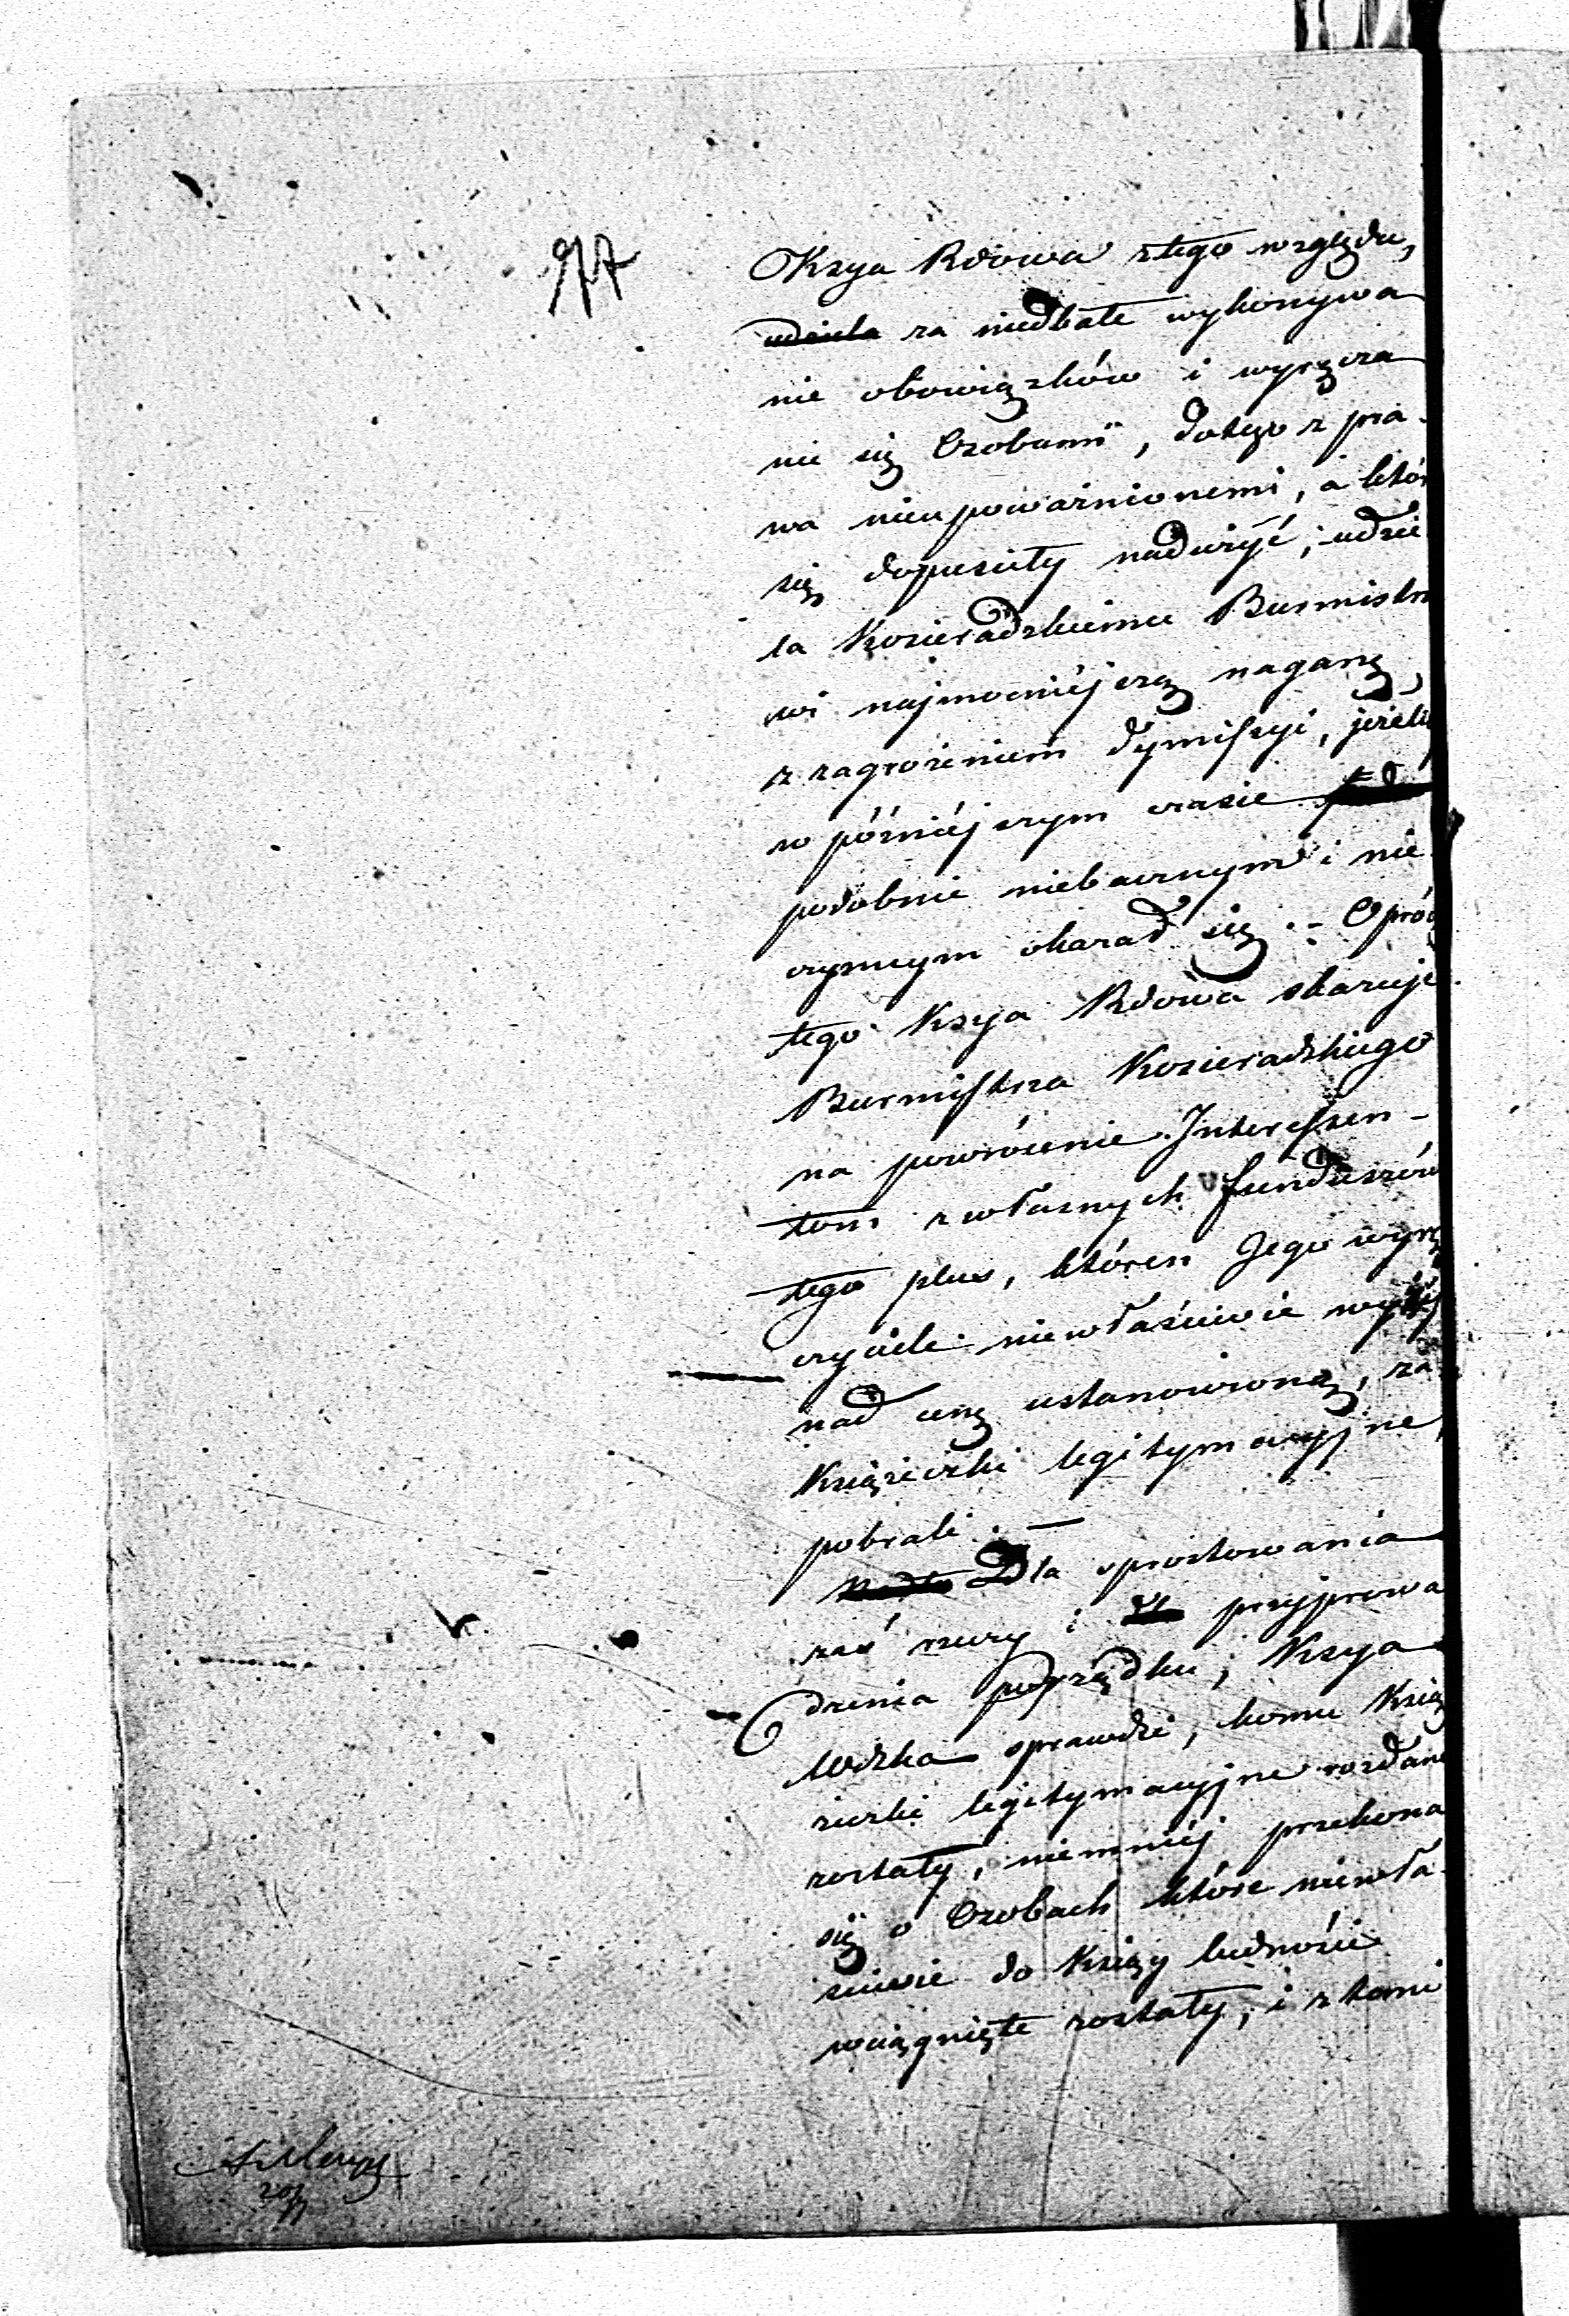 97
Kszya Rdowa z tego względu,
udziela za niedbałe wykonywa
nie obowiązków i wyręcza
nie się Osobami, do tego z pra-
wa nieupoważnionemi, a któr
się dopuściły nadużyć, udzie
la Kozieradzkiemu Burmistrz
wi najmocniéjszą naganę,
z zagrożeniem dymissyi, jeżeli
w późniéjszym czasie
podobnie niebacznym i nie
czynnym okazał się. - Opróc
tego Kszya Rdowa skazuje
Burmistrza Kozieradzkiego
na powrócenie Interessen-
tom z własnych funduszów
tego plus, któren Jego wyrę
czyciele niewłaściwie wyżéj
nad cenę ustanowioną, za
Książeczki legitymacyjne,
pobrali. -
Dla sprostowania
zaś rzeczy i przyprowa
dzenia porządku, Kszya
Wdzka sprawdzi, komu Ksią
żeczki legitymacyjne rozdane
zostały, niemniéj przekona
się o Osobach które niewła-
ściwie do Księgi ludności
wciągnięte zostały, i z tami